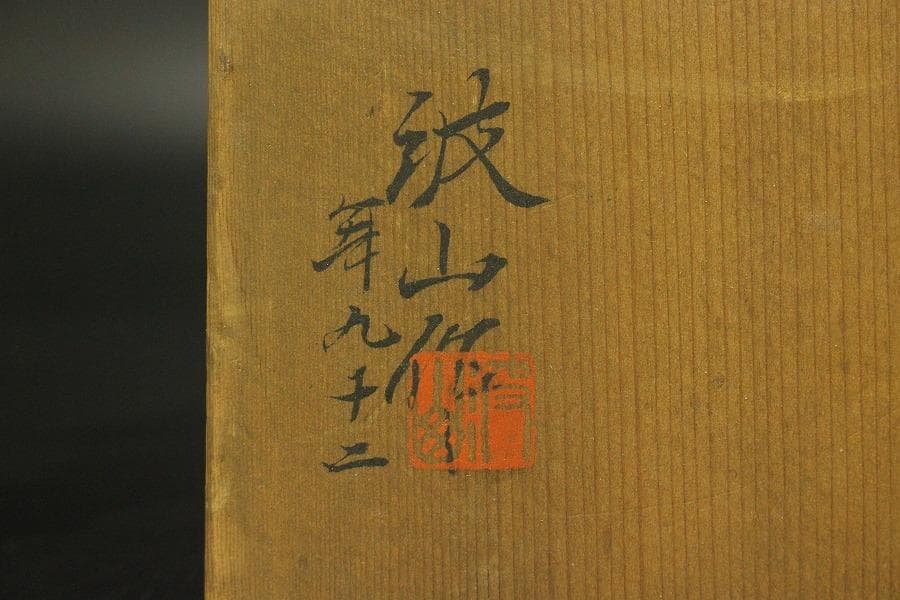 波山作
年九十二